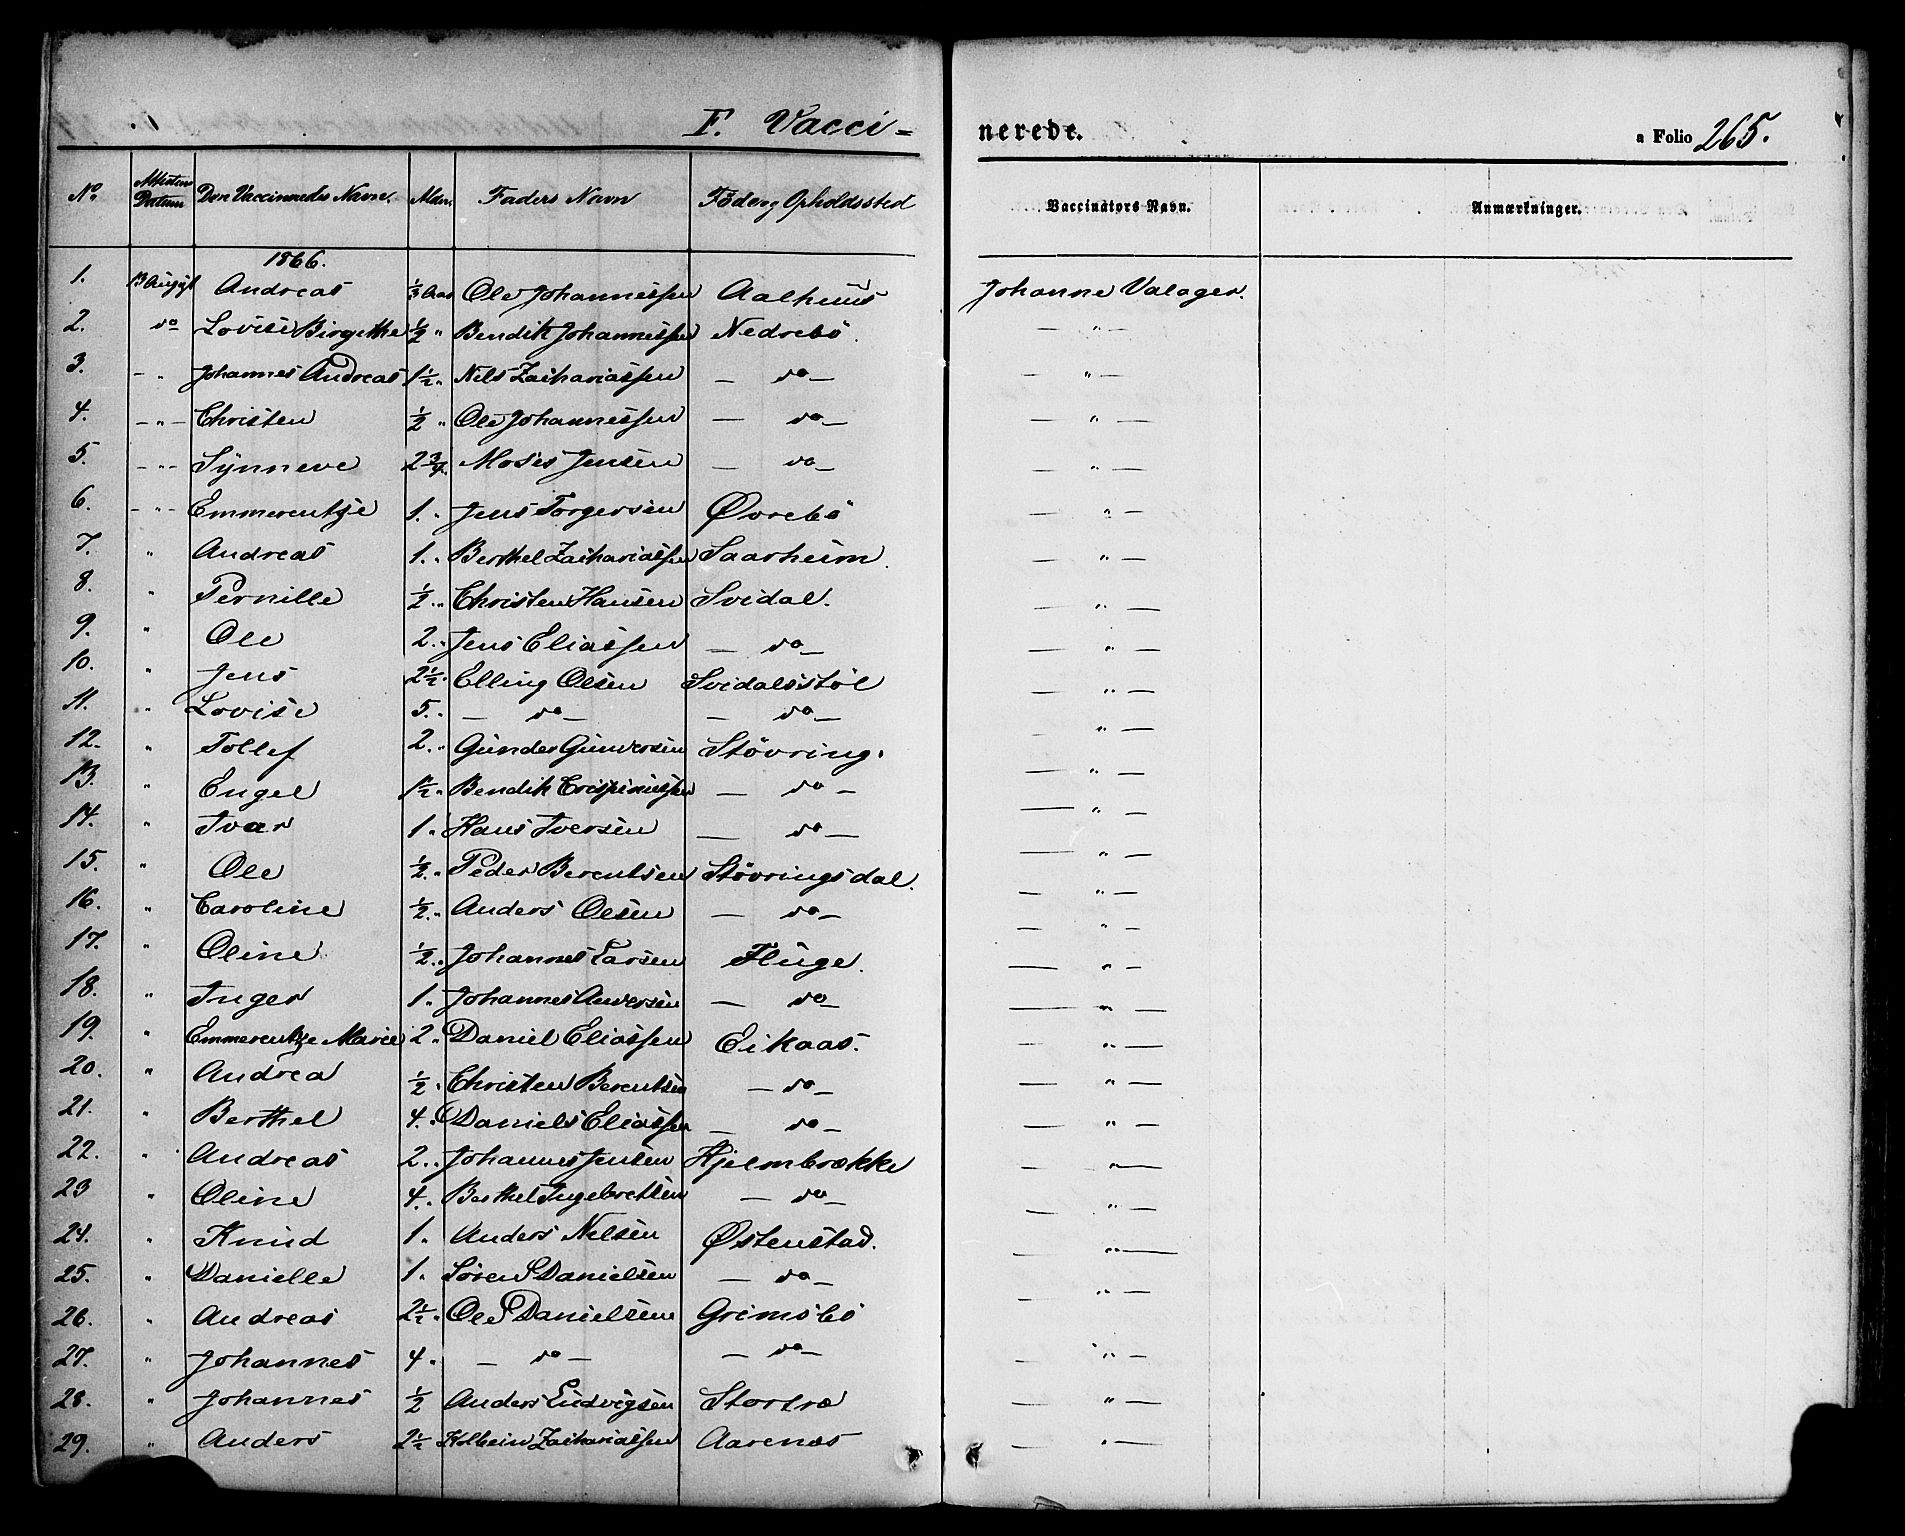 F. Vacci-
nerede.
a Folio 265.
No Attestens Datum Den Vaccineredes Navne. Alder. Faders Navn Føde og Opholdssted Vaccinators Navn. Anmærkninger.
1866.
1. 13 August Andreas 1/3 Aar Ole Johannessen Aalhuus Johanne Valager.
2. do Lovise Birgethe 1/2 " Bendik Johannessen Nedrebö. — " —
3. — " Johannes Andreas 1 1/2 " Nils Zachariassen — do — — " —
4. — " — Christen 1/2 " Ole Johannessen — do — — " —
5. — " — Synneve 2 3/4 " Moses Jensen — do — — " —
6. — " — Emmerentje 1. " Jens Torgersen Øvrebö — " —
7. " Andreas 1. " Berthel Zachariassen Saarheim. — " —
8. " Pernille 1/2 " Christen Hansen Svidal. — " —
9. " Ole 2. " Jens Eliassen — do — — " —
10. " Jens 2 1/2 " Elling Olsen Svidalsstöl — " —
11. " Lovise 5. " — do — — do — — " —
12. " Tollef 2. " Gunder Gunversen Stövring. — " —
13. " Engel 1 1/2 " Bendik Crispinussen — do — — " —
14. " Ivar 1 " Hans Iversen — do — — " —
15. " Ole 1/2 " Peder Berentsen Stövringsdal. — " —
16. " Caroline 1/2 " Anders Olsen — do — — " —
17. " Oline 1/2 " Johannes Larsen Fluge. — " —
18. " Inger 1. " Johannes Anversen — do — — " —
19. " Emmerentje Marie 2 " Daniel Eliassen Eikaas. — " —
20. " Andrea 1/2 " Christen Berentsen — do — — " —
21. " Berthel 4. " Daniels Eliassen — do — — " —
22. " Andreas 2. " Johannes Jensen Hjelmbrække — " —
23 " Oline 4. " Berthel Ingebretsen — do — — " —
24. " Knud 1. " Anders Nelsen Østenstad. — " —
25. " Danielle 1. " Sören S Danielsen — do — — " —
26. " Andreas 2 1/2 " Ole S Danielsen Grimsbö — " —
27. " Johannes 4 " — do — — do — — " —
28. " Johannes 1/2 Anders Ludvigsen Stortræ — " —
29. " Anders 2 1/2 " Kolbein Zachariassen Aarenæs — " —